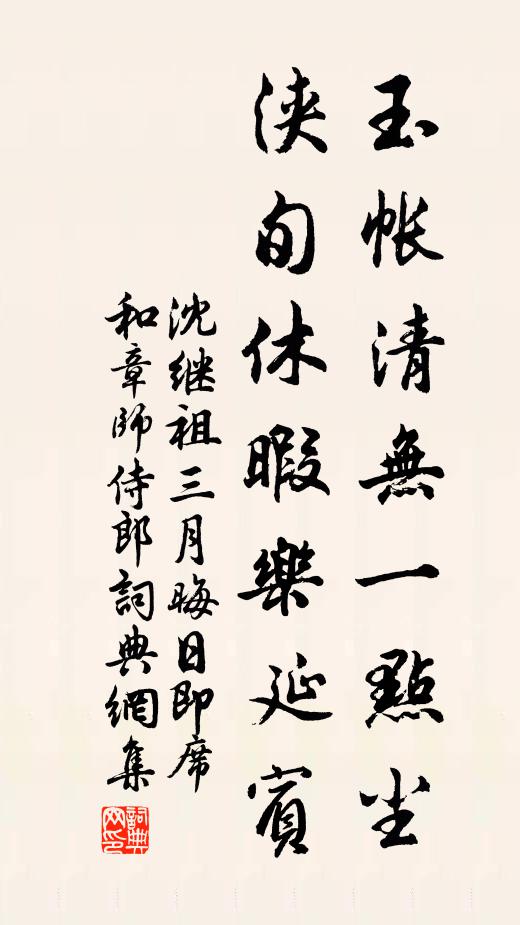 玉帐清無一點尘
浃旬休暇樂延賓
沈继祖三月晦日即席
和章师侍郎詞典網集
詞典网印